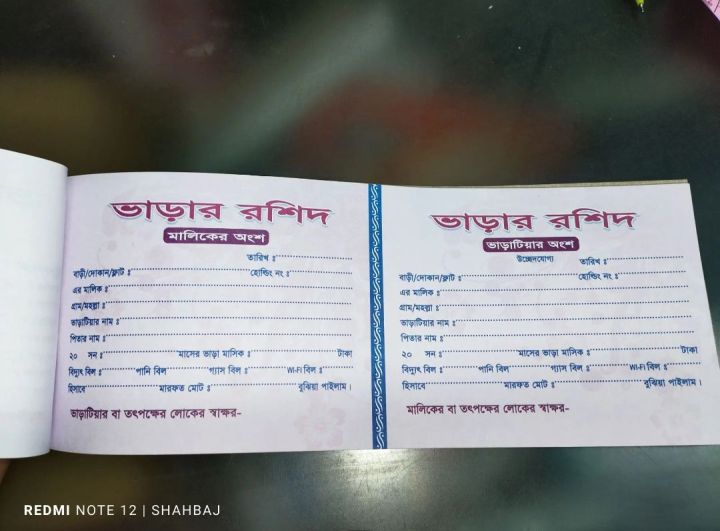 ভাড়ার রশিদ
মালিকের অংশ
তারিখ ঃ
বাড়ী/দোকান/ফ্লাট ঃ হোল্ডিং নং ঃ
এর মালিক ঃ
গ্রাম/মহল্লা ঃ
ভাড়াটিয়ার নাম ঃ
পিতার নাম ঃ
২০ সন ঃ মাসের ভাড়া মাসিক ঃ টাকা
বিদ্যুৎ বিল ঃ পানি বিল গ্যাস বিল ঃ Wi-Fi বিল ঃ
হিসাবে মারফত মোট ঃ বুঝিয়া পাইলাম।
ভাড়াটিয়ার বা তৎপক্ষের লোকের স্বাক্ষর-
ভাড়ার রশিদ
ভাড়াটিয়ার অংশ
উচ্ছেদযোগ্য তারিখ ঃ
বাড়ী/দোকান/ফ্লাট ঃ হোল্ডিং নং ঃ
এর মালিক ঃ
গ্রাম/মহল্লা ঃ
ভাড়াটিয়ার নাম ঃ
পিতার নাম ঃ
২০ সন ঃ মাসের ভাড়া মাসিক ঃ টাকা
বিদ্যুৎ বিল ঃ পানি বিল গ্যাস বিল ঃ Wi-Fi বিল ঃ
হিসাবে মারফত মোট ঃ বুঝিয়া পাইলাম।
মালিকের বা তৎপক্ষের লোকের স্বাক্ষর-
REDMI NOTE 12 | SHAHBAJ